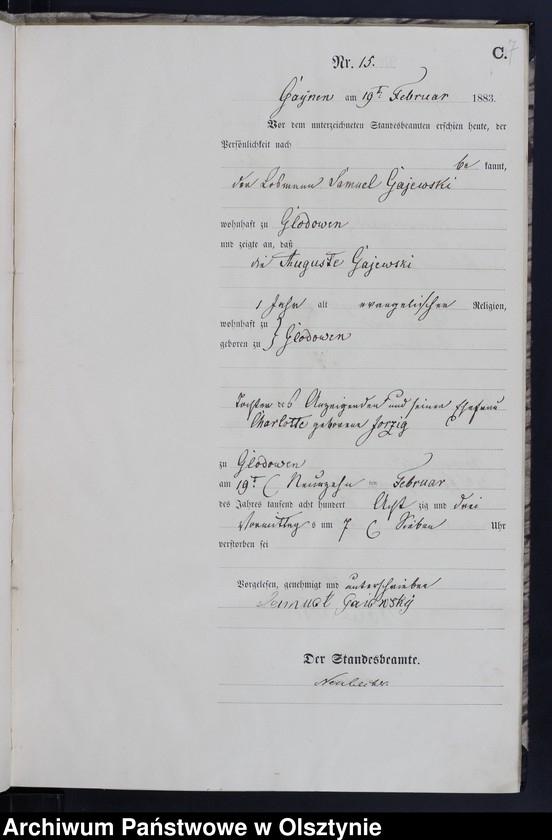 C. 7
Nr. 15.
Gaynen am 19t Februar 1883.
Vor dem unterzeichneten Standesbeamten erschien heute, der
Persönlichkeit nach
be kannt,
der Losmann Samuel Gajewski
wohnhaft zu Glodowen
und zeigte an, daß
die Auguste Gajewski
1 Jahr alt evangelischer Religion,
wohnhaft zu
geboren zu } Glodowen
Tochter des Anzeigenden und seiner Ehefrau
Charlotte geborene Jorzig
zu Glodowen
am 19t ( Neunzehn ten Februar
des Jahres tausend acht hundert Acht zig und drei
Vormittag s um 7 ( Sieben Uhr
verstorben sei
Vorgelesen, genehmigt und unterschrieben
Samuel Gaiewsky
Der Standesbeamte.
Archiwum Państwowe w Olsztynie